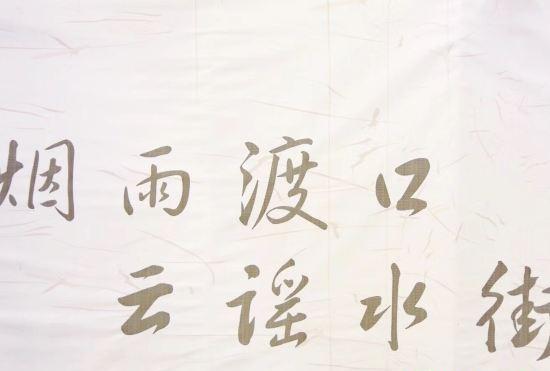 烟雨渡口
云谣水街